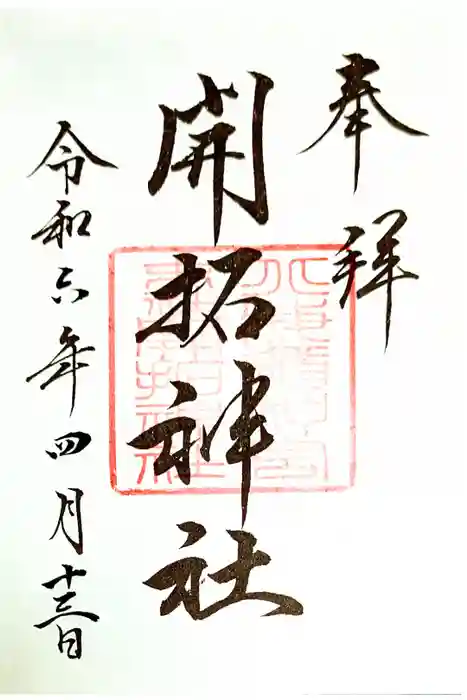 奉拝
開拓神社
令和六年四月十三日